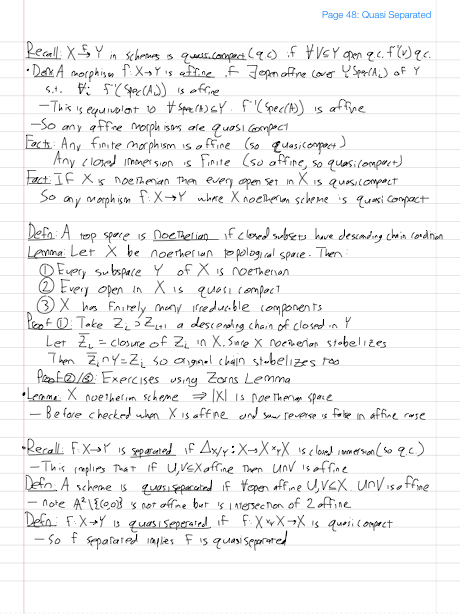 Page 48: Quasi Separated
Recall: X →f Y in schemes is quasi.compact (q.c) if ∀V⊆Y open q.c. f⁻¹(V) q.c.
• Defn: A morphism f: X→Y is affine if ∃ open affine cover ∪ Spec(Aᵢ) of Y
s.t. ∀i f⁻¹(Spec(Aᵢ)) is affine
– This is equivalent to ∀ Spec(A)⊆Y. f⁻¹(Spec(A)) is affine
– So any affine morphisms are quasi compact
Fact: Any finite morphism is affine (so quasicompact)
Any closed immersion is Finite (so affine, so quasicompact)
Fact: If X is noetherian then every open set in X is quasicompact
So any morphism f: X→Y where X noetherian scheme is quasi compact
Defn: A top space is noetherian if closed subsets have descending chain condition
Lemma: Let X be noetherian topological space. Then:
① Every subspace Y of X is noetherian
② Every open in X is quasi compact
③ X has finitely many irreducible components
Proof ①: Take Zᵢ ⊃ Zᵢ₊₁ a descending chain of closed in Y
Let Z̅ᵢ = closure of Zᵢ in X. Since X noetherian stabelizes
Then Z̅ᵢ∩Y=Zᵢ so original chain stabelizes too
Proof ②/③: Exercises using Zorns Lemma
• Lemma: X noetherian scheme ⇒ |X| is noetherian space
– Before checked when X is affine and saw reverse is false in affine case
• Recall: f: X→Y is separated if Δx/y : X→X×ᵧX is closed immersion (so q.c.)
– This implies that if U,V⊆X affine then U∩V is affine
Defn: A scheme is quasi separated if ∀ open affine U,V⊆X. U∩V is affine
– note A²\{(0,0)} is not affine but is intersection of 2 affine
Defn: f: X→Y is quasi seperated if f: X×ᵧX→X is quasi compact
– So f separated implies f is quasi seperated